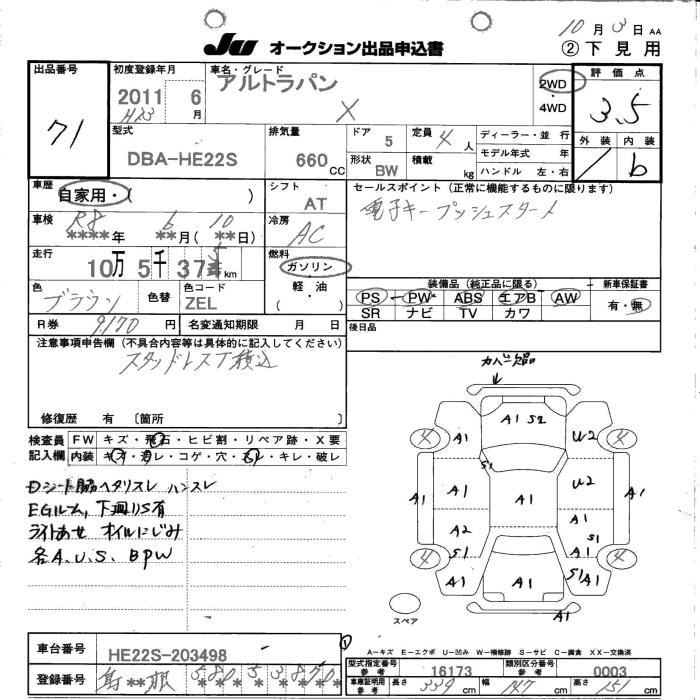 10月3日 AA
JU オークション出品申込書 ②下見用
出品番号 71
初度登録年月 2011 6月 H23
車名・グレード アルトラパン X
2WD・4WD
評価点 3.5
外装 内装 b
型式 DBA-HE22S
排気量 660cc
ドア 5 定員 4人
形状 BW 積載 kg
ディーラー・並行
モデル年式 年
ハンドル 左・右
車歴 自家用・( )
シフト AT
セールスポイント(正常に機能するものに限ります)
電子キー プッシュスタート
車検 R8 6 10
****年 **月(**日)
冷房 AC
走行 10万5千375km
燃料 ガソリン・軽油 ( )
装備品(純正品に限る) 新車保証書
PS PW ABS エアB AW 有・無
SR ナビ TV カワ
色 ブラウン 色替 色コード ZEL
R券 9,170円 名変通知期限 月 日
後日品
注意事項申告欄(不具合内容等は具体的に記入してください)
スタッドレスT積込
修復歴 有 〔箇所 〕
検査員記入欄 FW キズ・飛石・ヒビ割・リペア跡・X要
内装 キズ・汚レ・コゲ・穴・スレ・キレ・破レ
Dシート脇ヘタリスレ ハンスレ
EGルーム、下廻りS有
ライトあせ オイルにじみ
各A.U.S. BPW
カバー欠品
A1 S2
4 A1 U2 4
S1
A1 A1 A1 U2 A1
A2 A1
4 S1 A1 S1 4
A1 A1 S1 A1
A1
スペア
A−キズ E−エクボ U−凹み W−補修跡 S−サビ C−腐食 XX−交換済
車台番号 HE22S-203498
①
型式指定番号 参考 16173 類別区分番号 参考 0003
登録番号 島**根 580 す 3870
車庫証明用参考 長さ 339cm 幅 147cm 高さ 151cm